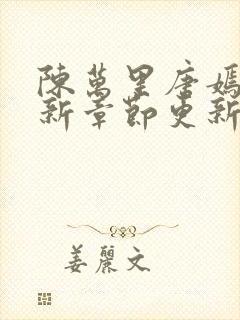 陳萬里唐嫣
新章節更新
姜麗文